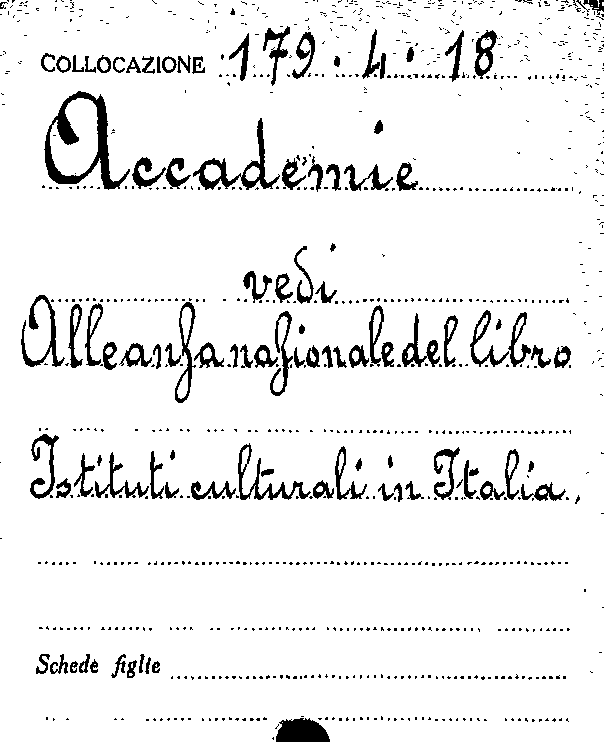 COLLOCAZIONE 179 · 4 · 18
Accademie
vedi
Alleanza nazionale del libro
Istituti culturali in Italia.
Schede figlie